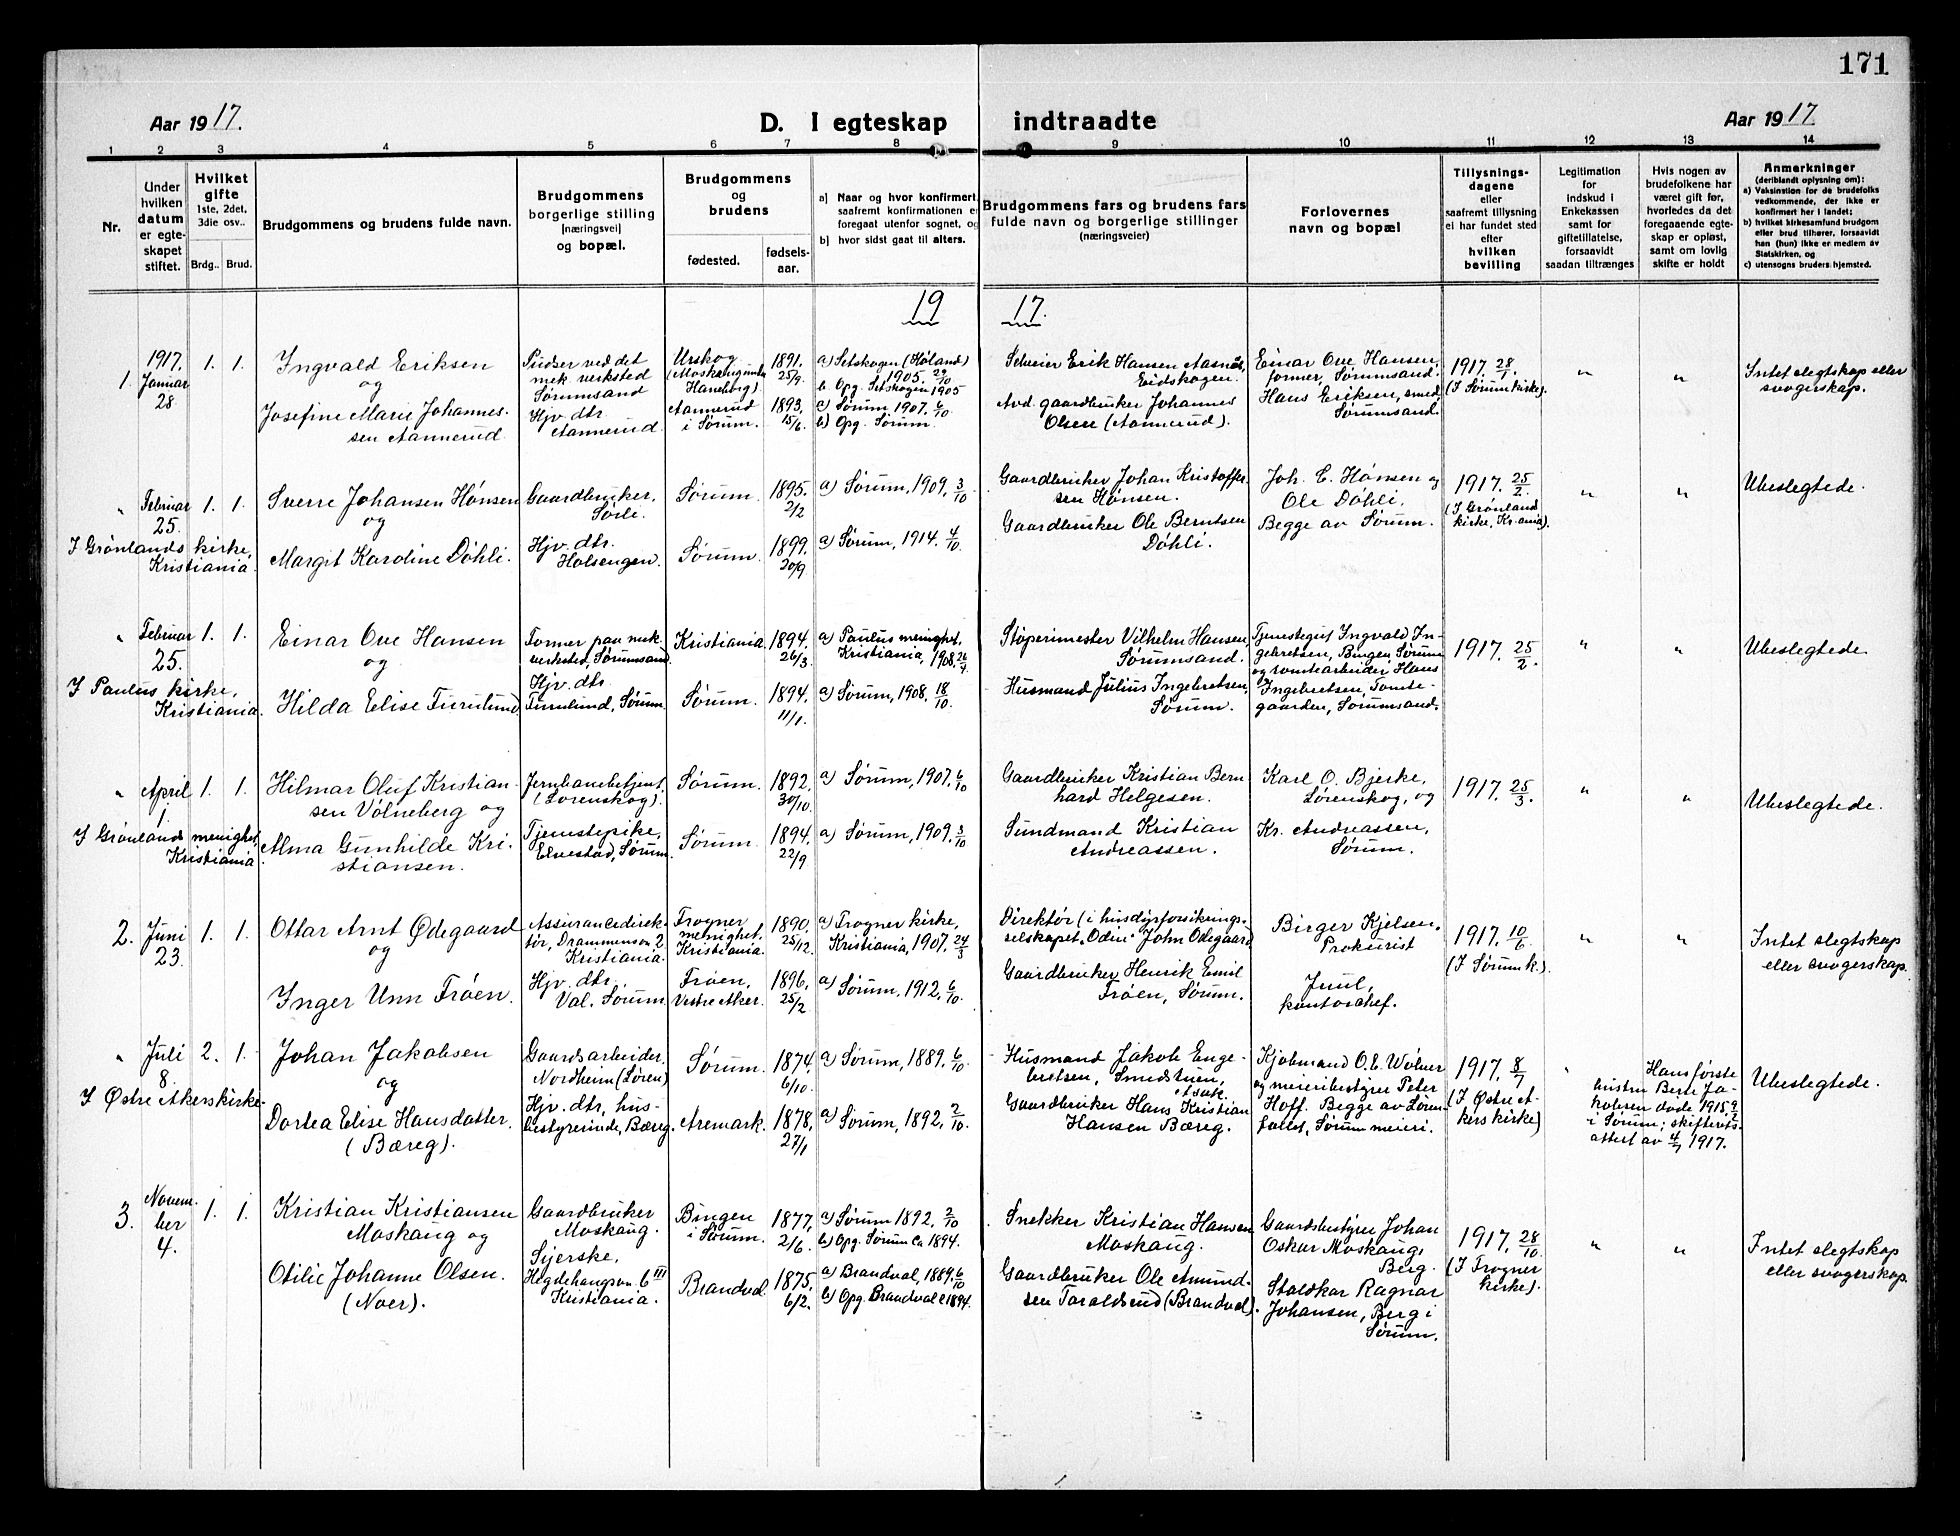 171
Aar 1917.
D. I egteskap indtraadte
Aar 1917
1 2 3 4 5 6 7 8 9 10 11 12 13 14
Nr.
Under hvilken datum er egteskapet stiftet.
Hvilket gifte 1ste, 2det, 3die osv..
Brdg.. Brud.
Brudgommens og brudens fulde navn.
Brudgommens borgerlige stilling (næringsvei) og bopæl.
Brudgommens og brudens
fødested.
fødselsaar.
a) Naar og hvor konfirmert,
saafremt konfirmationen er
foregaat utenfor sognet, og
b) hvor sidst gaat til alters.
Brudgommens fars og brudens fars
fulde navn og borgerlige stillinger
(næringsveier)
Forlovernes
navn og bopæl
Tillysningsdagene eller saafremt tillysning ei har fundet sted efter hvilken bevilling
Legitimation for indskud i Enkekassen samt for giftetillatelse, forsaavidt saadan tiltrænges
Hvis nogen av brudefolkene har været gift før, hvorledes da det foregaaende egteskap er opløst, samt om lovlig skifte er holdt
Anmerkninger
(deriblandt oplysning om):
a) Vaksination for de brudefolks vedkommende, der ikke er konfirmert her i landet;
b) hvilket kirkesamfund brudgom eller brud tilhører, forsaavidt han (hun) ikke er medlem av Statskirken, og
c) utensogns bruders hjemsted.
19 17.
1.
1917.
Januar
28.
1. 1.
Ingvald Eriksen
og
Josefine Marie Johannes-
sen Aannerud.
Pudser ved det
mek. verksted
Sørumsand
Hjv. dtr.
Aannerud.
Urskog
Haneborg).
Aannerud
i Sørum.
1891.
25/9.
1893.
15/6.
a) Setskogen (Høland)
1905. 29/10
b. Opg. Setskogen 1905
a) Sørum. 1907. 6/10.
b) Opg. Sørum.
Selveier Erik Hansen Aasnæs,
Eidskogen.
Avd. gaardbruker Johannes
Olsen (Aannerud).
Einar Ove Hansen,
former, Sørumsand.
Hans Eriksen, smed,
Sørumsand.
1917. 28/1
(I Sørum kirke).
"
"
Intet slegtskap eller
svogerskap.
"
Februar
25.
1. 1.
I Grønlands kirke,
Kristiania.
Sverre Johansen Hønsen
og
Margit Karoline Døhli.
Gaardbruker,
Sørli.
Hjv. dtr.
Holsengen.
Sørum.
Sørum.
1895.
2/2
1899.
20/9
a) Sørum, 1909. 3/10
a) Sørum, 1914. 4/10.
Gaardbruker Johan Kristoffer-
sen Hønsen.
Gaardbruker Ole Berntsen
Døhli.
Joh. E. Hønsen og
Ole Døhli.
Begge av Sørum.
1917. 25/2.
(I Grønland
kirke, Kr.ania).
"
"
Ubeslegtede.
"
Februar
25.
1. 1.
I Paulus kirke,
Kristiania.
Einar Ove Hansen
og
Hilda Elise Furulund.
Former paa mek.
verksted, Sørumsand
Hjv. dtr.
Furulund, Sørum.
Kristiania.
Sørum.
1894.
26/3.
1894.
11/1.
a) Paulus menighet.
Kristiania, 1908. 26/4
a) Sørum, 1908. 18/10.
Støperimester Vilhelm Hansen,
Sørumsand.
Husmand Julius Ingebretsen,
Sørum.
Tjenestegut Ingvald In-
gebretsen, Bingen Sørum
og tomtearbeider Hans
Ingebretsen, Tomte-
gaarden, Sørumsand.
1917. 25/2.
"
"
Ubeslegtede.
"
April
1.
1. 1.
I Grønlands menighet,
Kristiania
Hilmar Oluf Kristian-
sen Vølneberg og
Alma Gunhilde Kri-
stiansen.
Jernbanebetjent,
(Lørenskog).
Tjenestepike,
Elvestad, Sørum.
Sørum.
Sørum.
1892.
30/10.
1894.
22/9
a) Sørum, 1907. 6/10
a) Sørum, 1909. 3/10
Gaardbruker Kristian Bern
hard Helgesen.
Sundmand Kristian
Andreassen.
Karl O. Bjerke,
Lørenskog, og
Kr. Andreassen,
Sørum.
1917. 25/3.
"
"
Ubeslegtede.
2.
Juni
23.
1. 1.
Ottar Arnt Ødegaard
og
Inger Unn Frøen.
Assurancedirek-
tør, Drammensv. 2
Kristiania.
Hjv. dtr.
Val, Sørum.
Frogner
menighet,
Kristiania.
Frøen,
Vestre Aker.
1890.
25/12.
1896.
25/2
a) Frogner kirke,
Kristiania, 1907. 24/3
a) Sørum, 1912. 6/10.
Direktør (i husdyrforsikrings-
selskapet "Odin" John Ødegaard
Gaardbruker Henrik Emil
Frøen, Sørum.
Birger Kjelsen,
Prokurist
Juul,
kontorchef.
1917. 10/6.
(I Sørum k.).
"
"
Intet slegtskap
eller svogerskap.
"
Juli
8.
2. 1.
I Østre Akers kirke
Johan Jakobsen
og
Dortea Elise Hansdatter.
(Bæreg).
Gaardsarbeider,
Nordheim (Løren)
Hjv. dtr, hus-
bestyrerinde, Bæreg.
Sørum.
Aremark.
1874.
6/10.
1878.
27/1
a) Sørum, 1889. 6/10
a) Sørum, 1892. 2/10.
Husmand Jakob Enge-
bretsen, Smedstuen,
Gaardbruker Hans Kristian
Hansen Bæreg.
Kjøbmand O. E. Wølner
og meieribestyrer Peter
Hoff. Begge av Løren-
fallet, Sørum meieri.
1917. 8/7
(I Østre A-
kers kirke)
"
Hans første
hustru Berte Ja-
kobsen døde 1915 9/2
i Sørum; skifterets-
attest av 4/7 1917.
Ubeslegtede.
3.
Novem-
ber
4.
1. 1.
Kristian Kristiansen
Moskaug og
Otilie Johanne Olsen.
(Noer).
Gaardbruker
Moskaug.
Sjerske,
Hegdehaugsvn. 6 III
Kristiania.
Bingen
i Sørum.
Brandval
1877.
2/6.
1875.
6/2.
a) Sørum 1892. 2/10
b) Opg. Sørum Ca 1894.
a) Brandval, 1889. 6/10
b) Opg. Brandval c 1894.
Snekker Kristian Hansen
Moskaug.
Gaardbruker Ole Amund-
sen Taraldsrud (Brandval).
Gaardsbestyrer Johan
Oskar Moskaug,
Berg.
Staldkar Ragnar
Johansen, Berg i
Sørum.
1917. 28/10
(I Frogner
kirke).
"
"
Intet slegtskap
eller svogerskap.